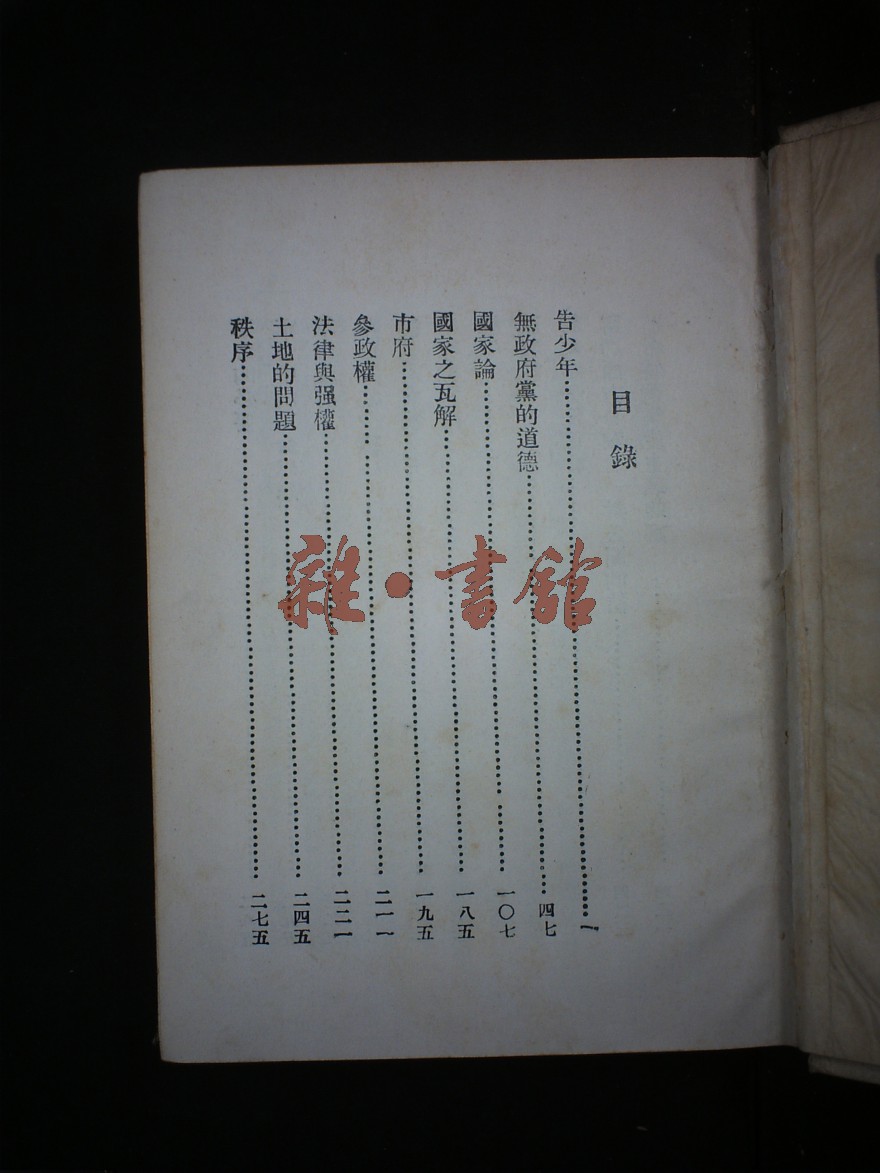 目錄
告少年……一
無政府黨的道德……四七
國家論……一〇七
國家之瓦解……一八五
市府……一九五
參政權……二一一
法律與强權……二二一
土地的問題……二四五
秩序……二七五
雜·書館